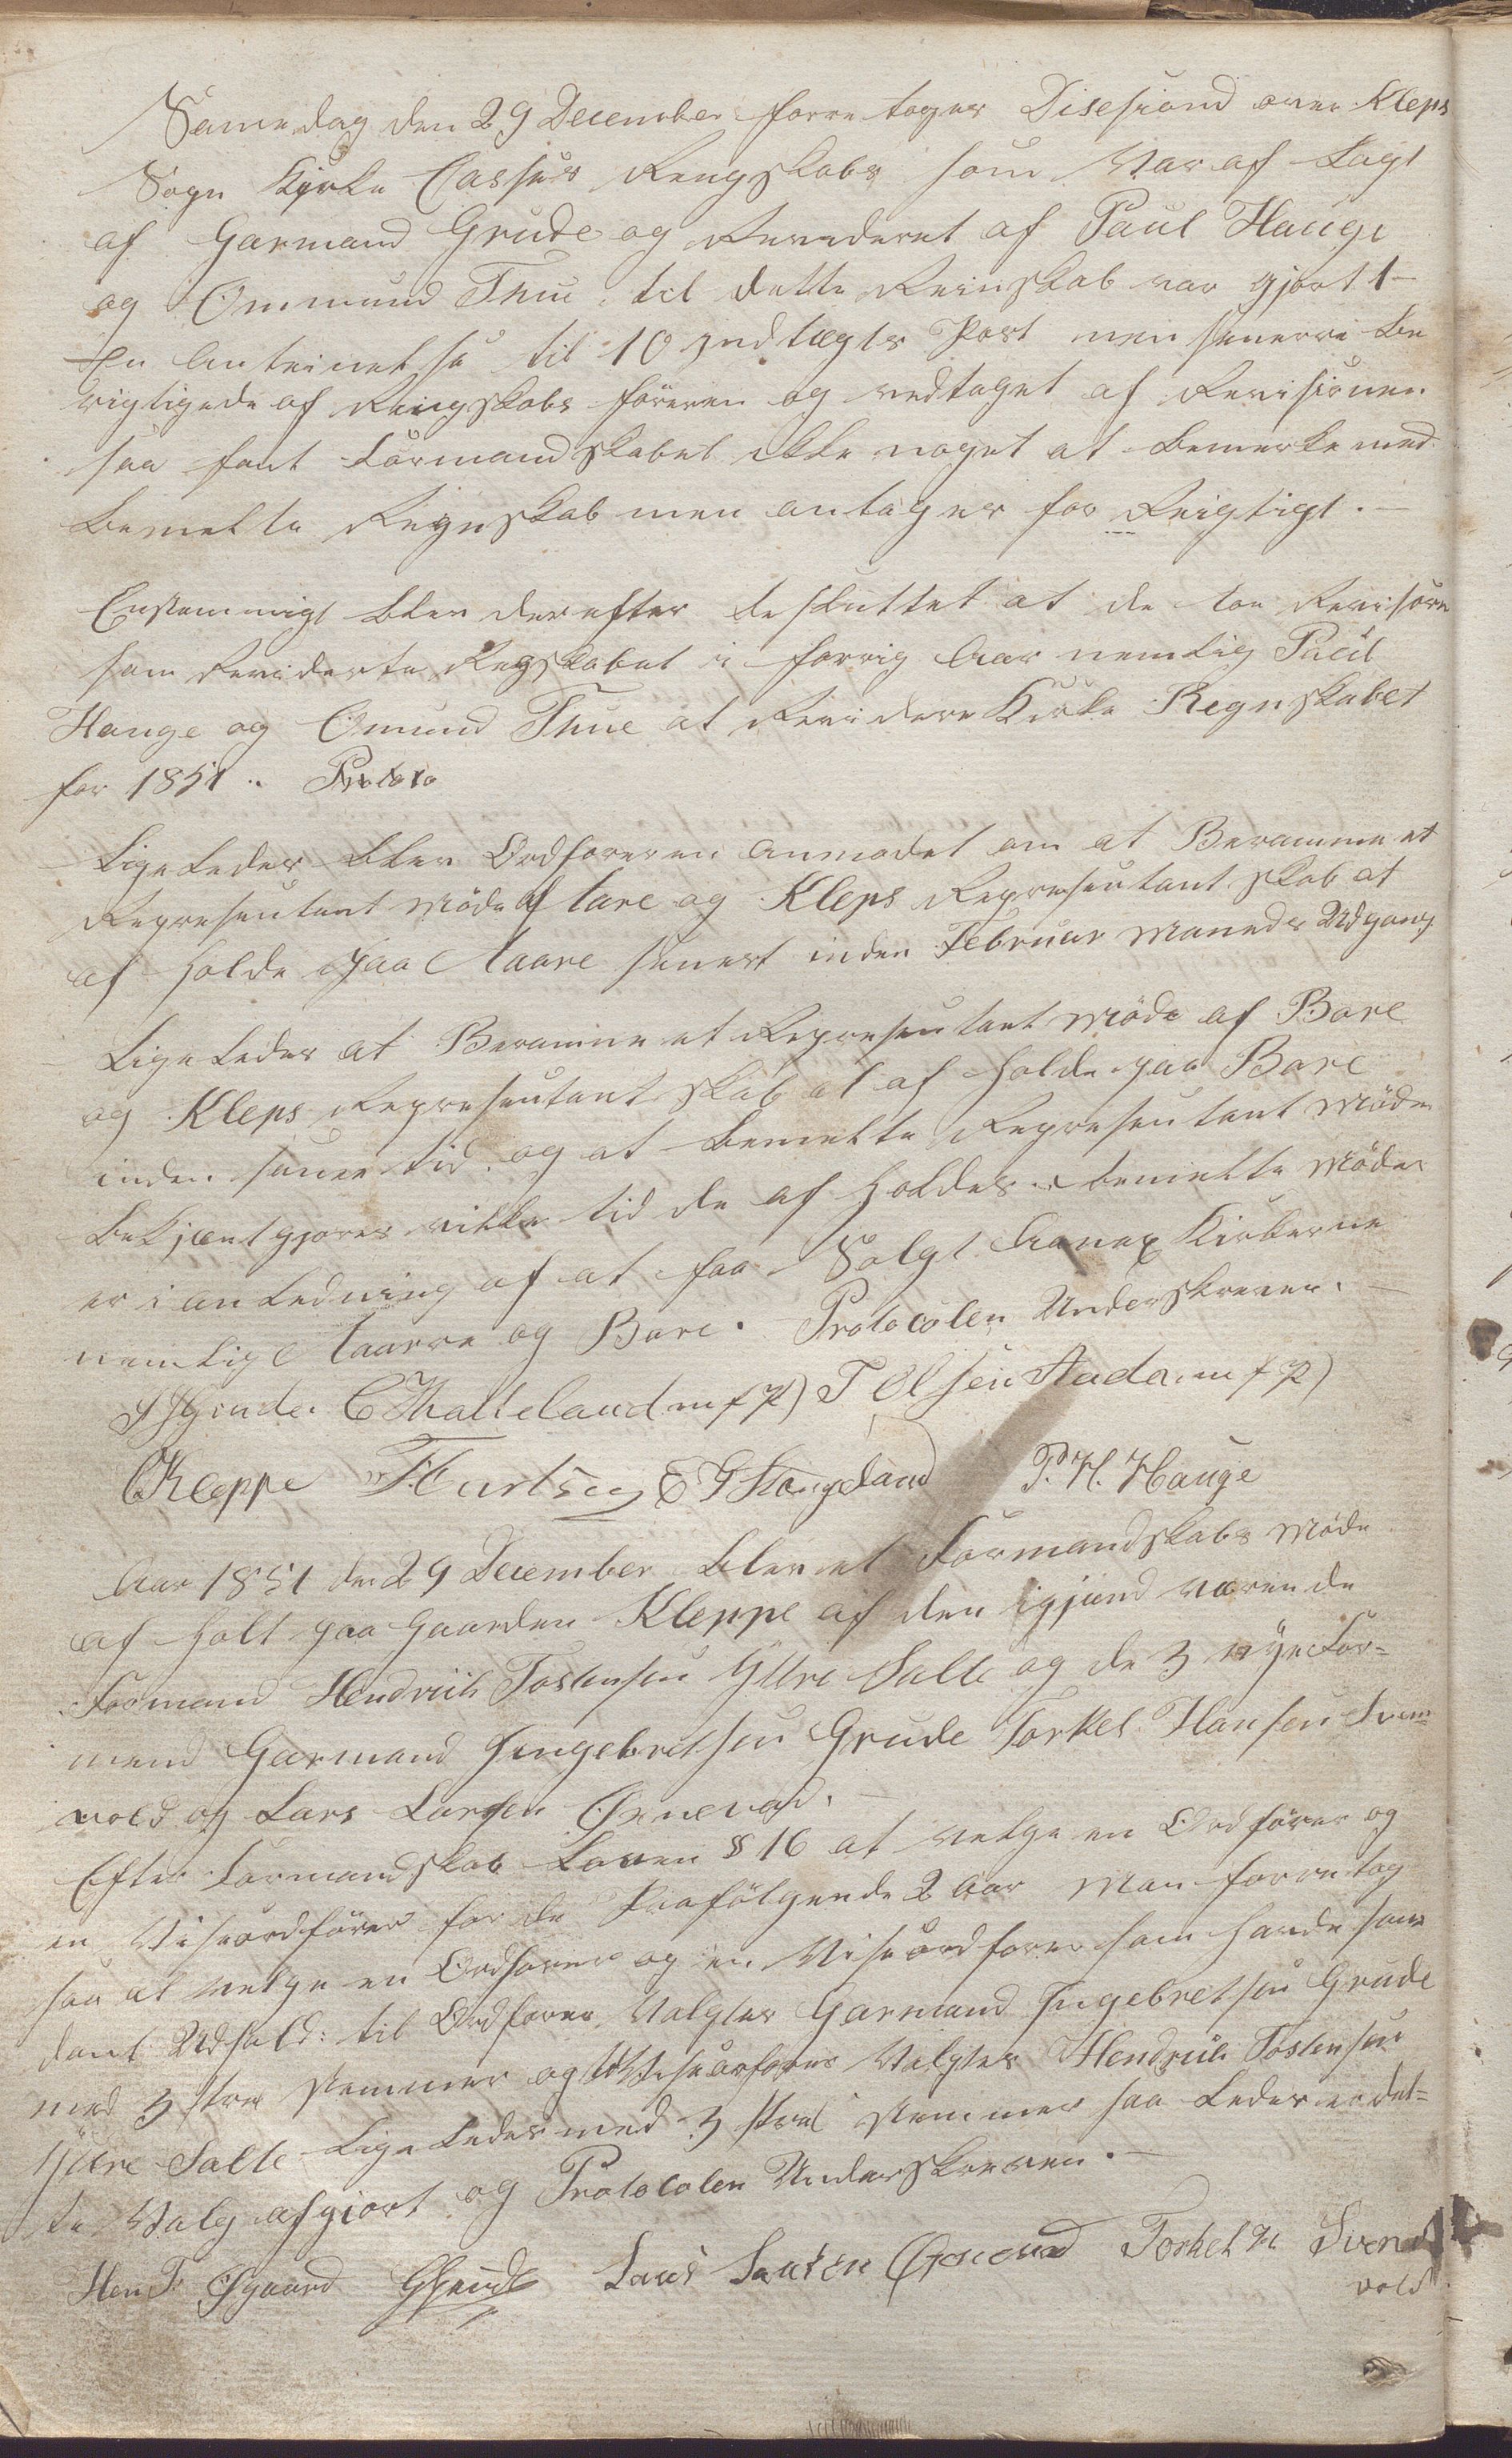 Samedag den 29 December forretoges Disesiond over Kleps
Sogn Kirke Casses Rengskabs som Var af Lagt
af Garmand Grude og Revideret af Paul Hauge
og Ommund Thue, til dette Reinskab var gjort 1
En Anteinelse til 10 Indtægts Post men senerre be
rigtigede af Reingskabs föreren og vedtaget af Revisionen
saa fant Formandskabet ikke noget at bemerke med
bemelte Reignskab men antages for Reigtigt. —
Enstemmigt blev derefter besluttet at de toe Revisore
som Reviderte Regskabet i forrig Aar nemlig Paul
Hauge og Omund Thue at Revidere Kirke Regnskabet
for 1851.. Protoco
Ligeledes blev Ordforeren anmodet om at Beramme et
Representant Möde af tare og Kleps Representantskab at
af holde paa Haare senest inden Februar Maaneds Udgang
Ligeledes at Beramme et Representant Möde af Bore
og Kleps Representantskab at af holde paa Bore
inden same tid. og at bemelte Representant Möder
bekjentgjores vilken tid de af holdes. bemelte Möder
er i anledning af at faa Solgt Annex Kirkerne
nemlig Haarre og Bore. Protocolen Underskreven. —
Grude. C Thatteland m f P) T Olsen Aada. m f P)
OKleppe T. Curtsen E G Stangeland P. H. Hauge
Aar 1851 den 29 December blev et Formandskabs Möde
af holt paa Gaarden Kleppe af den igjend værende
Formand Hendrik Tostensen Yttre Salte og de 3 nye For-
mend Garmand Jngebretsen Grude Torkel Hansen Sven-
vold og Lars Larsen Öxnevad. —
Efter Formandskab Loven § 16 at velge en Ordförer og
en Viseordförer for de Paafölgende 2 Aar Man forretog
saa at velge en Ordforer og en Viseordforer som havde saa
dant Udfald: til Ordforer Valgtes Garmand Jngebretsen Grude
med 3 tre stemmer og til Viseorforer Valgtes Hendrik Tostensen
Yttre Salte Ligeledes med 3 tre stemmer saa ledes er det-
te Valg afgjort og Protocolen Underskreven. —
Hen T. Øgaard GGrude Lars Larsen Öxnevad Torkel H Svend
vold